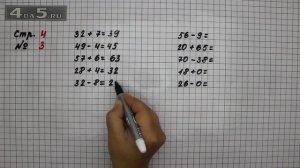 4DA5.RU
Стр. 4
№ 3
32 + 7 = 39
49 - 4 = 45
57 + 6 = 63
28 + 4 = 32
32 - 8 = 2
56 - 9 =
20 + 65 =
70 - 38 =
18 + 0 =
26 - 0 =